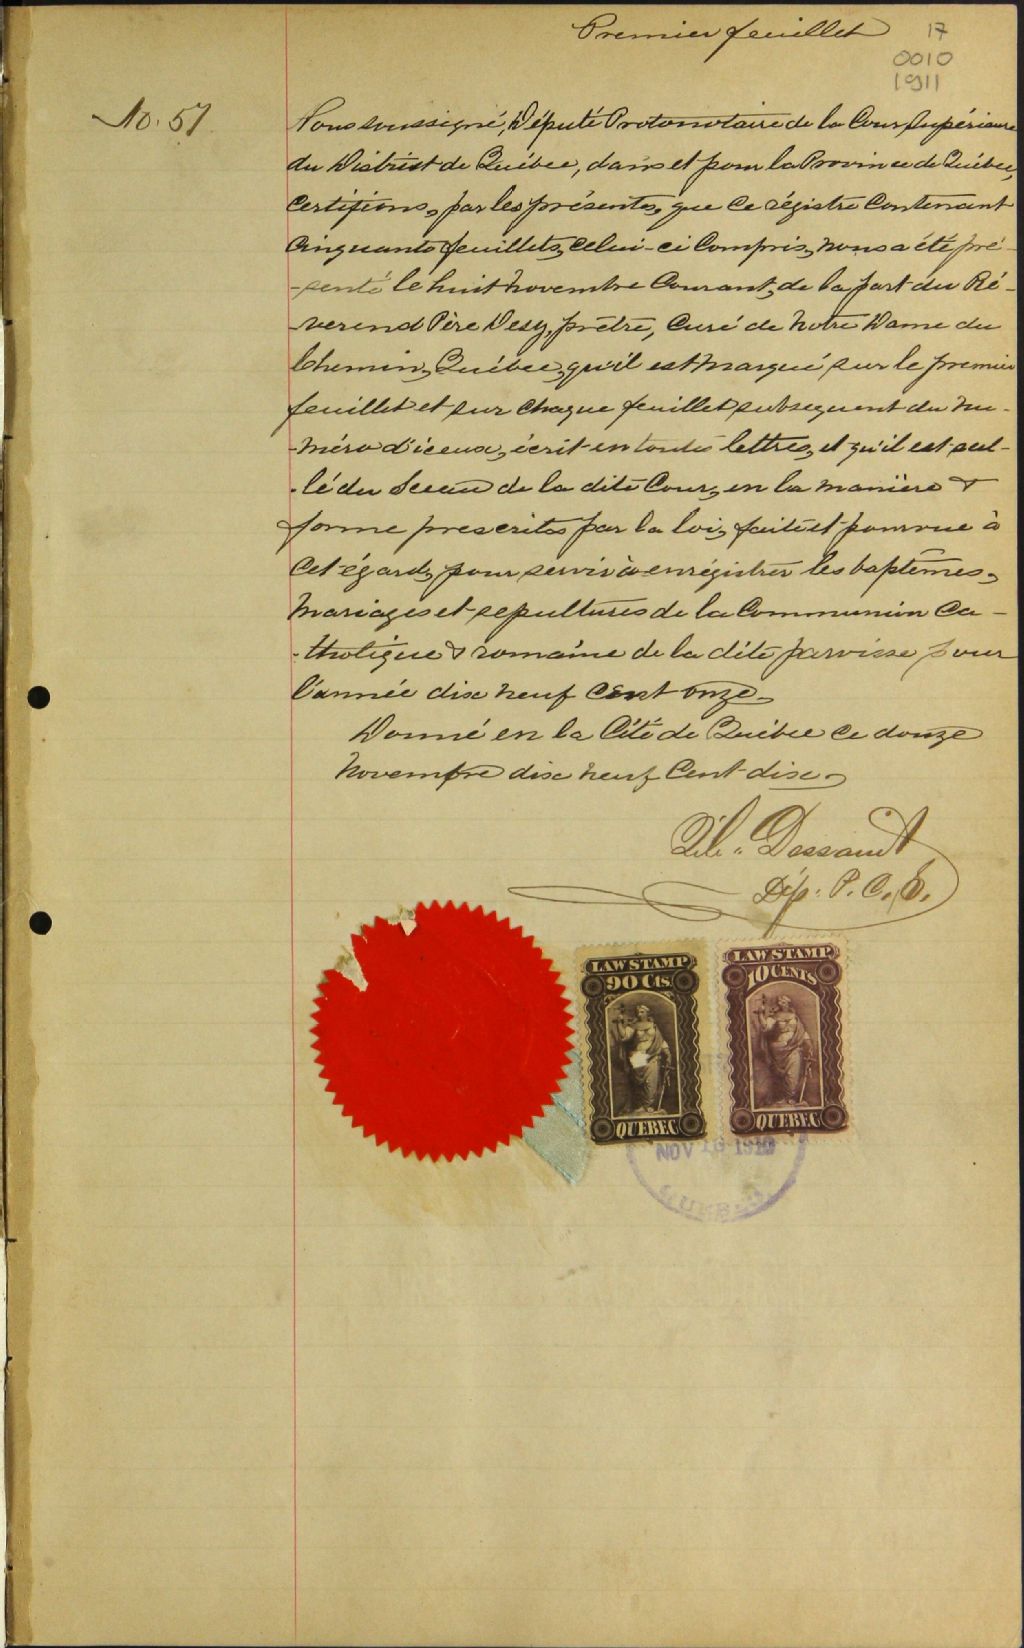 Premier feuillet
17
0010
1911
No. 57
Nous soussigné, Député Protonotaire de la Cour Supérieure
du District de Québec, dans et pour la Province de Québec,
Certifions, par les présentes, que ce régistre contenant
Cinquante feuillets, celui-ci compris, nous a été pré-
-senté le huit novembre courant, de la part du Ré-
verend Père Désy, prêtre, Curé de Notre Dame du
Chemin, Québec, qu'il est marqué sur le premier
feuillet et sur chaque feuillet subsequent du nu-
-méro d'iceux, écrit en toutes lettres, et qu'il est scel-
-lé du Sceau de la dite Cour, en la manière &
forme prescrites par la loi, faite et pourvue à
cet égard, pour servir à enrégistrer les baptêmes,
Mariages et sepultures de la Communion Ca-
-tholique & romaine de la dite paroisse pour
l'année dix neuf cent onze.
Donné en la Cité de Québec ce douze
Novembre dix neuf cent dix.
Dessault
Dép. P. C. S.
LAW STAMP
90 Cts.
QUEBEC
LAW STAMP
10 CENTS
QUEBEC
NOV 16 1910
QUEBEC